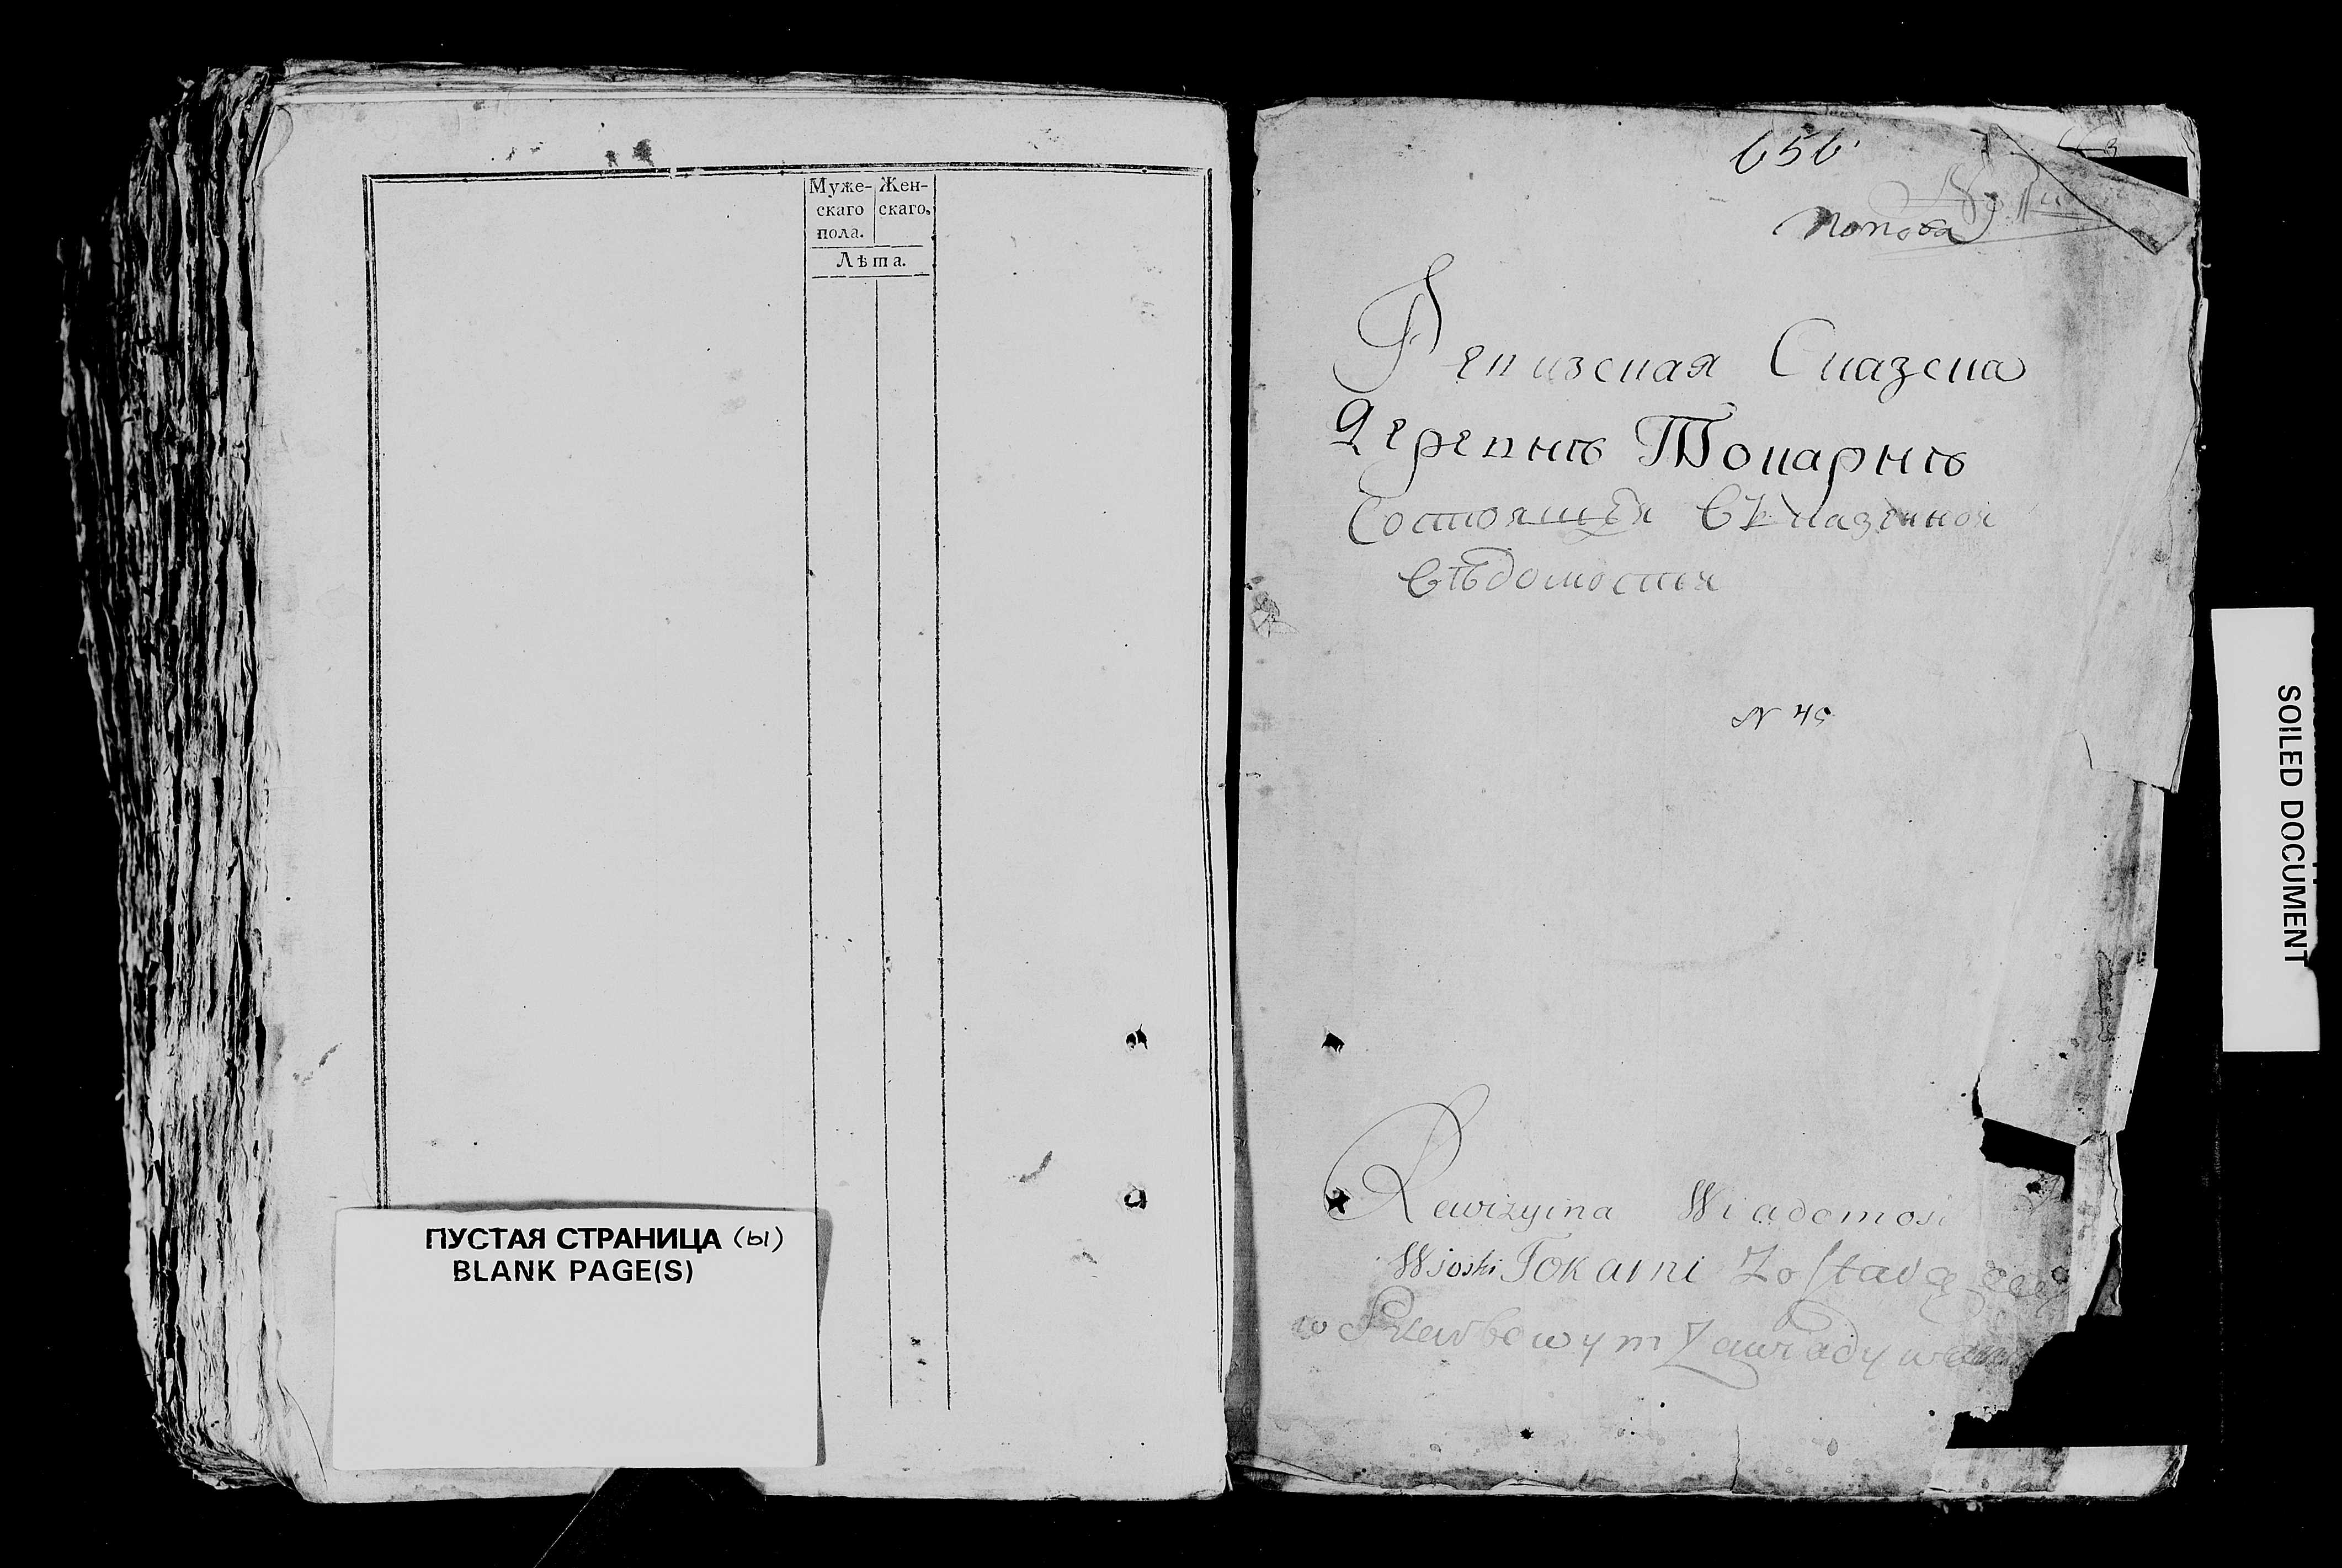 Муже- Жен-
скаго скаго,
пола.
Лѣта.
ПУСТАЯ СТРАНИЦА (Ы)
BLANK PAGE(S)
656
попова
Ревизская Сказска
Деревнѣ Токарнѣ
Состоящей Въ казенной
вѣдомости
N 45
Rewizyina Wiadomość
Wioski Tokarni Zostaiącey
w Skarbowym Zawiadywan
SOILED DOCUMENT